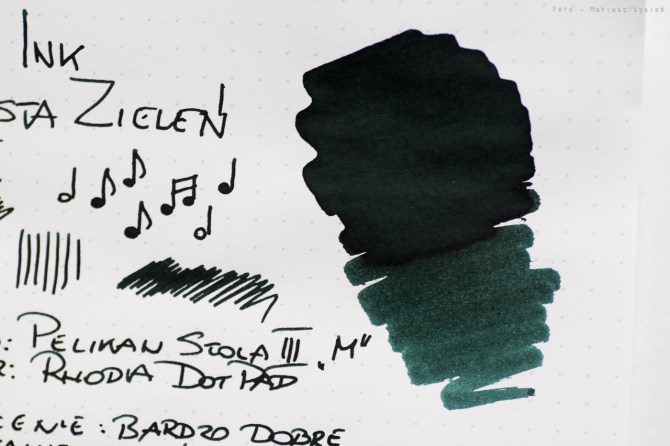 Foto - Mariusz Łysiak
INK
STA ZIELEŃ
: PELIKAN STOLA III „M”
: RHODIA DOT PAD
: BARDZO DOBRE